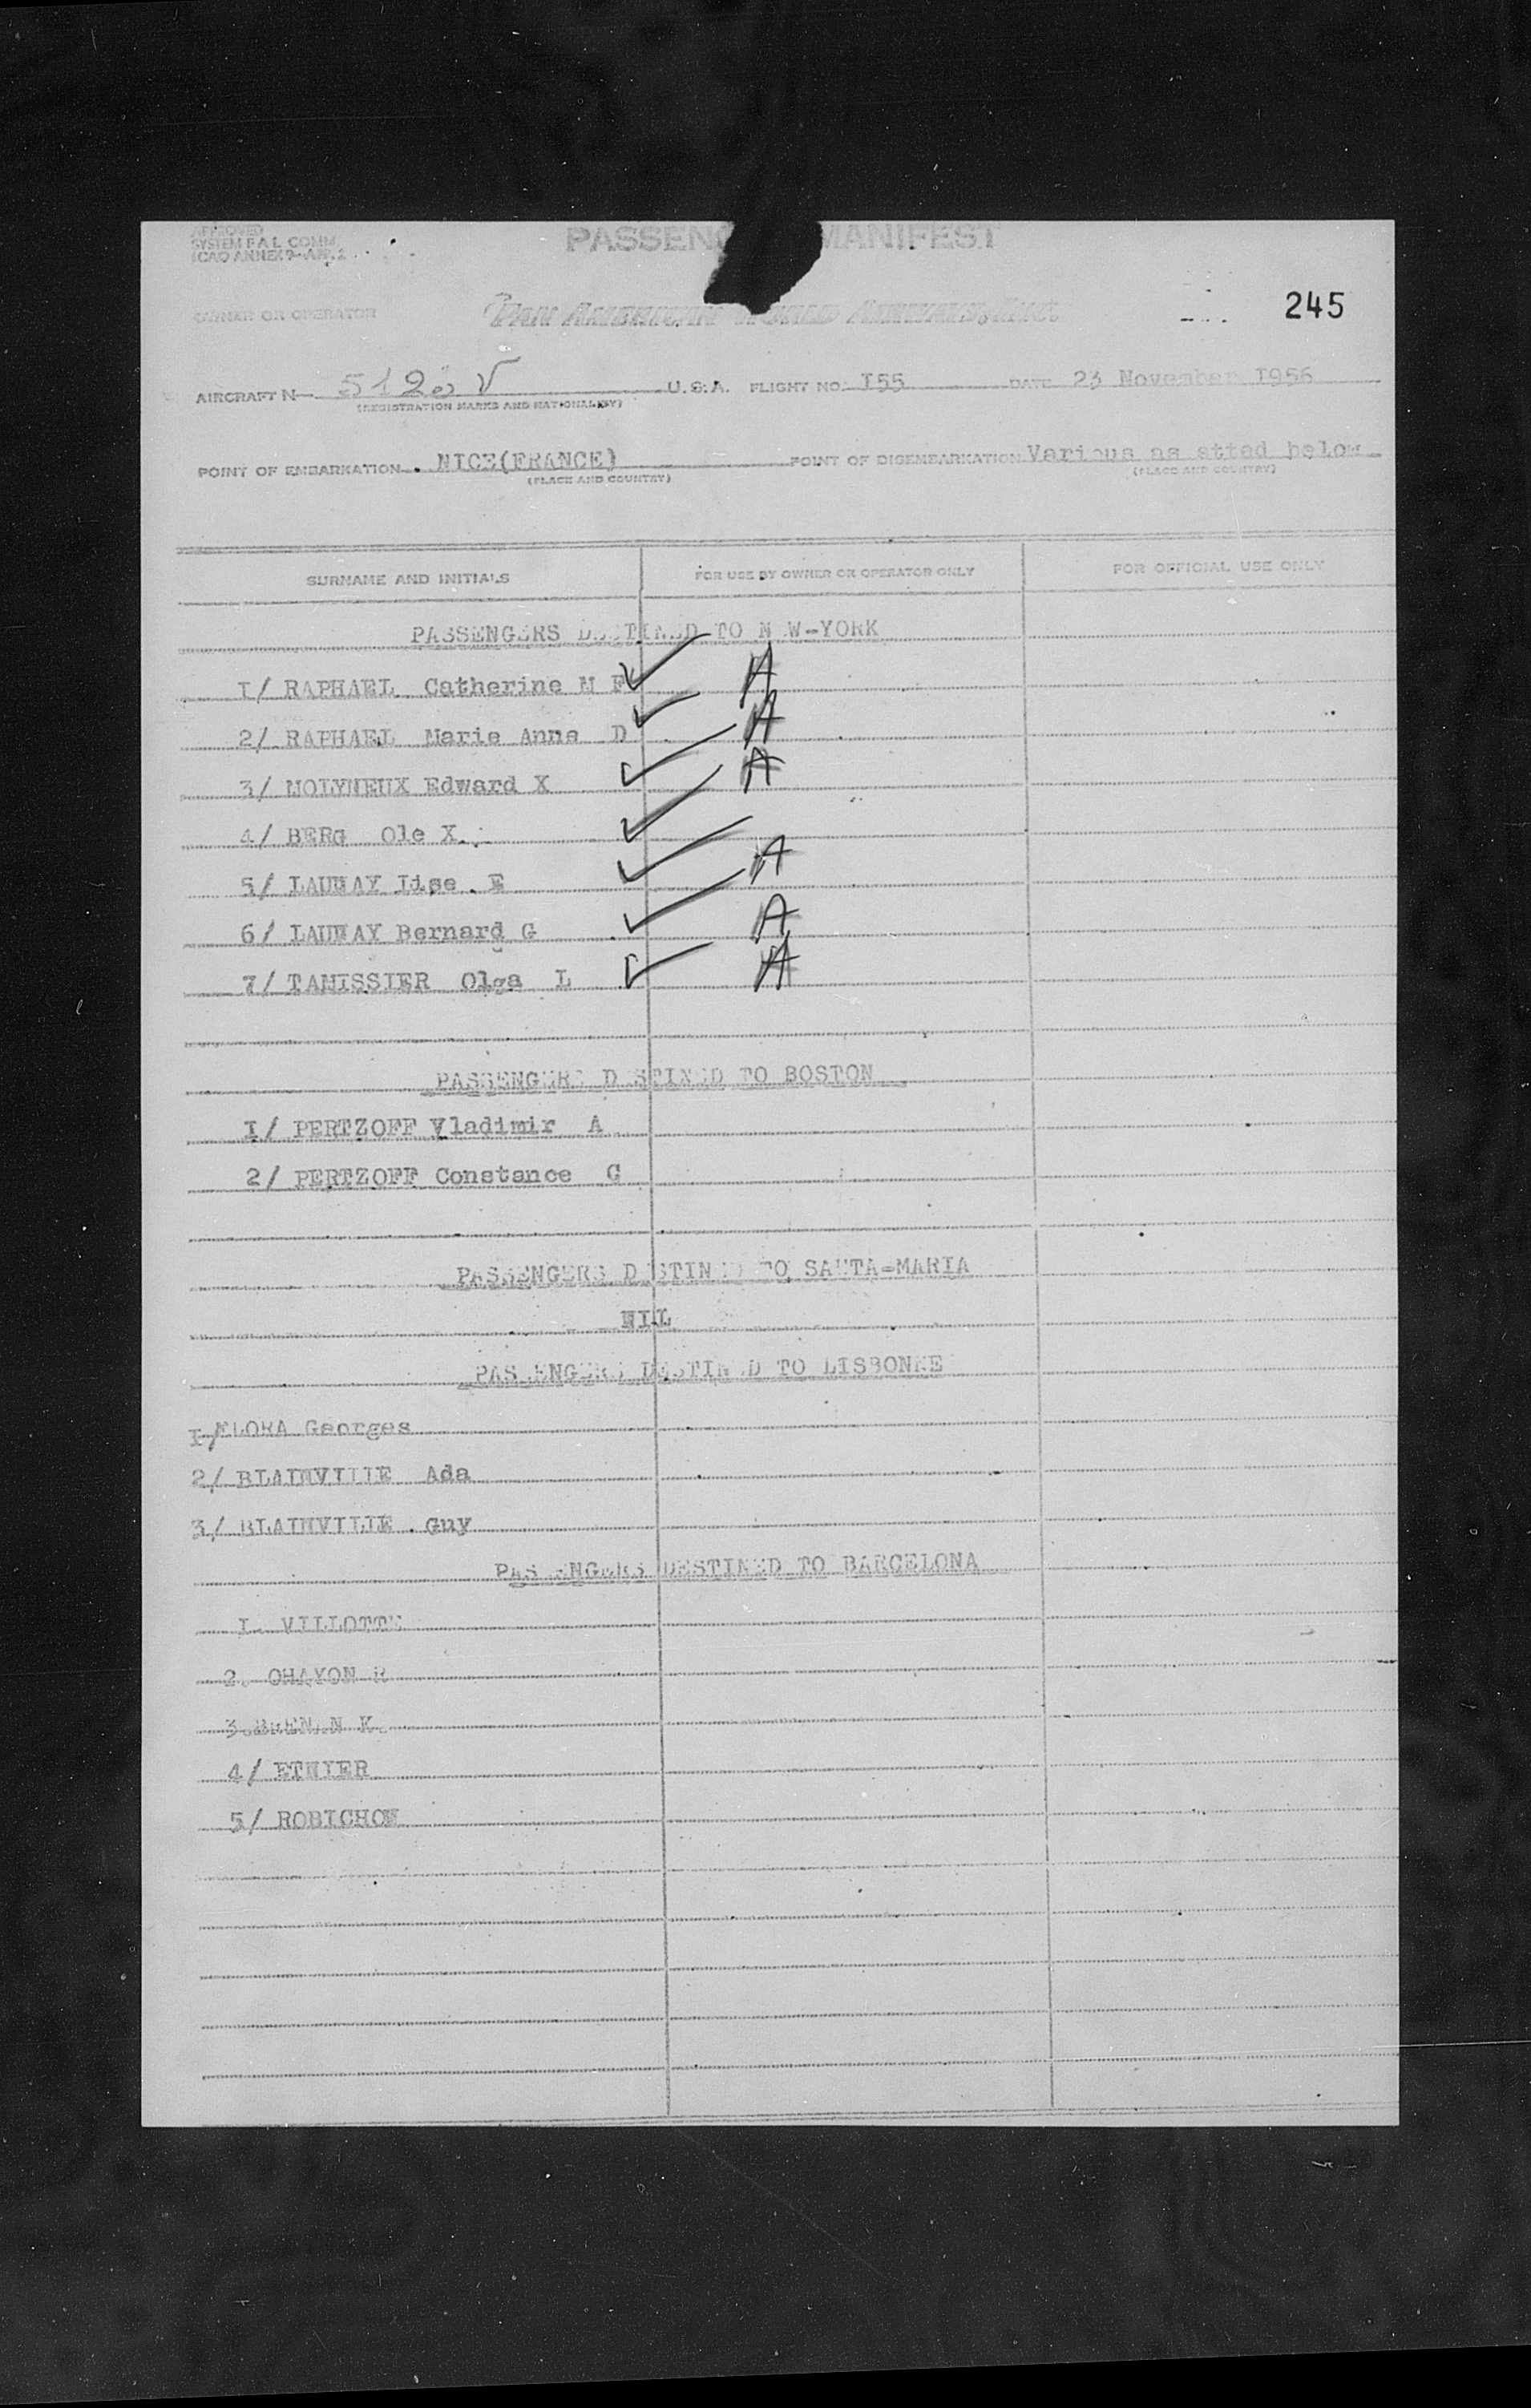 APPROVED
SYSTEM F A L COMM.
ICAO ANNEX 9-APP. 2
PASSENG MANIFEST
245
OWNER OR OPERATOR PAN AMERICAN WORLD AIRWAYS, INC.
AIRCRAFT N— V U.S.A. FLIGHT NO. I55 DATE 23 November I956
(REGISTRATION MARKS AND NATIONALITY)
POINT OF EMBARKATION NICE(FRANCE) POINT OF DISEMBARKATION Various as atted below
(PLACE AND COUNTRY) (PLACE AND COUNTRY)
SURNAME AND INITIALS FOR USE BY OWNER OR OPERATOR ONLY FOR OFFICIAL USE ONLY
PASSENGERS DESTINED TO NEW-YORK
I/ RAPHAEL Catherine M F A
2/ RAPHAEL Marie Anna D A
3/ MOLYNEUX Edward X A
4/ BERG Ole X.
5/ LAUNAY Lise. E A
6/ LAUNAY Bernard G A
7/ TAMISSIER Olga L A
PASSENGERS DESTINED TO BOSTON
I/ PERTZOFF Vladimir A
2/ PERTZOFF Constance G
PASSENGERS DESTINED TO SANTA-MARIA
NIL
PASSENGERS DESTINED TO LISBONNE
I/ FLORA Georges
2/ BLAINVILLE Ada
3/ BLAINVILLE . Guy
PASSENGERS DESTINED TO BARCELONA
I. VILLOTTE
2. OHAYON R
3. K.
4/ ETHIER
5/ ROBICHON